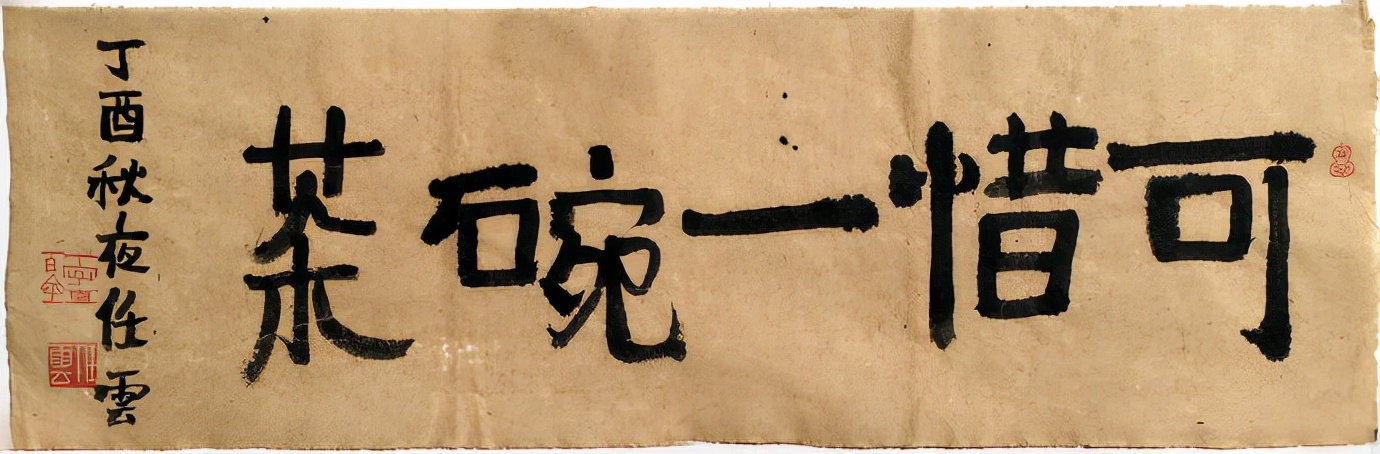 可惜一碗茶
丁酉秋夜任雲
任雲